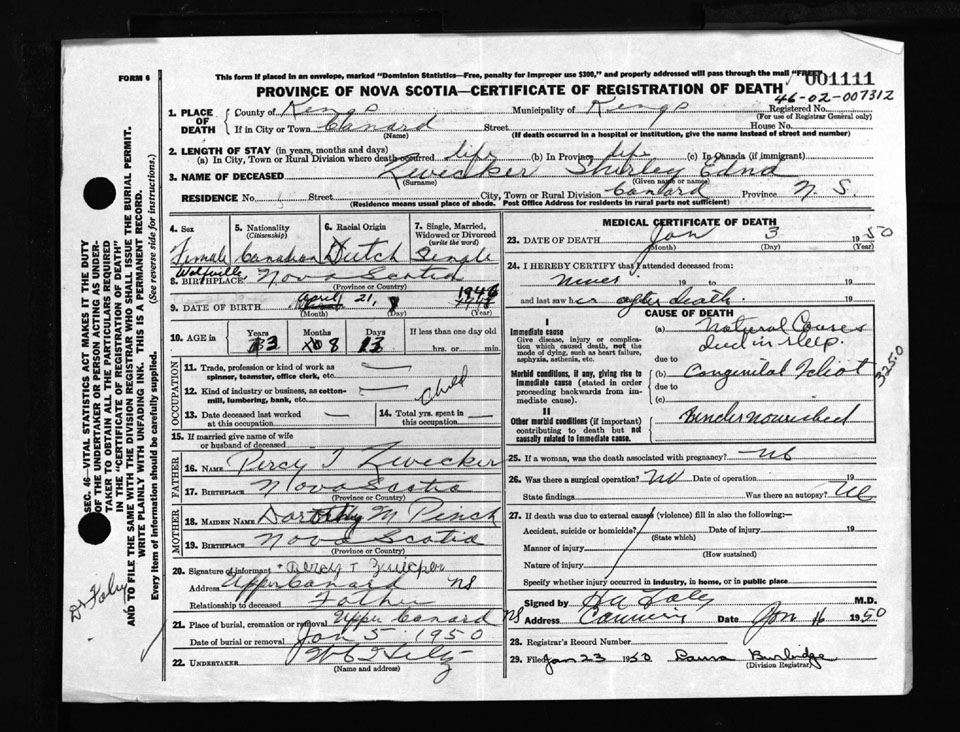 FORM 6
This form if placed in an envelope, marked "Dominion Statistics—Free, penalty for improper use $300," and properly addressed will pass through the mail "FREE"
001111
PROVINCE OF NOVA SCOTIA—CERTIFICATE OF REGISTRATION OF DEATH
46-02-007312
1. PLACE OF DEATH
County of Kings Municipality of Kings Registered No.
(For use of Registrar General only)
If in City or Town Canard Street House No.
(Name) (If death occurred in a hospital or institution, give the name instead of street and number)
2. LENGTH OF STAY (in years, months and days)
(a) In City, Town or Rural Division where death occurred life (b) In Province life (c) In Canada (if immigrant)
3. NAME OF DECEASED Zwicker Shirley Edna
(Surname) (Given name or names)
RESIDENCE No. Street City, Town or Rural Division Canard Province N. S.
(Residence means usual place of abode. Post Office Address for residents in rural parts not sufficient)
4. Sex 5. Nationality (Citizenship) 6. Racial Origin 7. Single, Married, Widowed or Divorced (write the word)
Female Canadian Dutch Single
Wolfville
8. BIRTHPLACE Nova Scotia
(Province or Country)
9. DATE OF BIRTH April 21, 1946
(Month) (Day) (Year)
10. AGE in Years Months Days If less than one day old
3 8 13 hrs. or min.
OCCUPATION
11. Trade, profession or kind of work as spinner, teamster, office clerk, etc.
12. Kind of industry or business, as cotton-mill, lumbering, bank, etc. Child
13. Date deceased last worked at this occupation
14. Total yrs. spent in this occupation
15. If married give name of wife or husband of deceased
FATHER
16. NAME Percy T Zwicker
17. BIRTHPLACE Nova Scotia
(Province or Country)
MOTHER
18. MAIDEN NAME Dorothy M Pinch
19. BIRTHPLACE Nova Scotia
(Province or Country)
20. Signature of informant Percy T Zwicker
Address Upper Canard NS
Relationship to deceased Father
21. Place of burial, cremation or removal Upper Canard
Date of burial or removal Jan 5 1950
22. UNDERTAKER
(Name and address)
MEDICAL CERTIFICATE OF DEATH
23. DATE OF DEATH Jan 3 1950
(Month) (Day) (Year)
24. I HEREBY CERTIFY that I attended deceased from:
never 19
and last saw her after death. 19
CAUSE OF DEATH
I
Immediate cause
Give disease, injury or complication which caused death, not the mode of dying, such as heart failure, asphyxia, asthenia, etc.
(a) Natural Causes
died in sleep.
due to
Morbid conditions, if any, giving rise to immediate cause (stated in order proceeding backwards from immediate cause).
(b) Congenital Idiot
due to
(c)
3250
II
Other morbid conditions (if important) contributing to death but not causally related to immediate cause.
25. If a woman, was the death associated with pregnancy? No
26. Was there a surgical operation? No Date of operation 19
State findings Was there an autopsy? No
27. If death was due to external causes (violence) fill in also the following:—
Accident, suicide or homicide? Date of injury 19
(State which)
Manner of injury
(How sustained)
Nature of injury
Specify whether injury occurred in industry, in home, or in public place
Signed by H A Foley M.D.
NS Address Canning Date Jan 16 1950
28. Registrar's Record Number
29. Filed Jan 23 1950 Laura Burbidge
(Division Registrar)
SEC. 46—VITAL STATISTICS ACT MAKES IT THE DUTY
OF THE UNDERTAKER OR PERSON ACTING AS UNDERTAKER TO OBTAIN ALL THE PARTICULARS REQUIRED
IN THE "CERTIFICATE OF REGISTRATION OF DEATH"
AND TO FILE THE SAME WITH THE DIVISION REGISTRAR WHO SHALL ISSUE THE BURIAL PERMIT.
WRITE PLAINLY WITH UNFADING INK. THIS IS A PERMANENT RECORD.
Every item of information should be carefully supplied. (See reverse side for instructions.)
Dr Foley